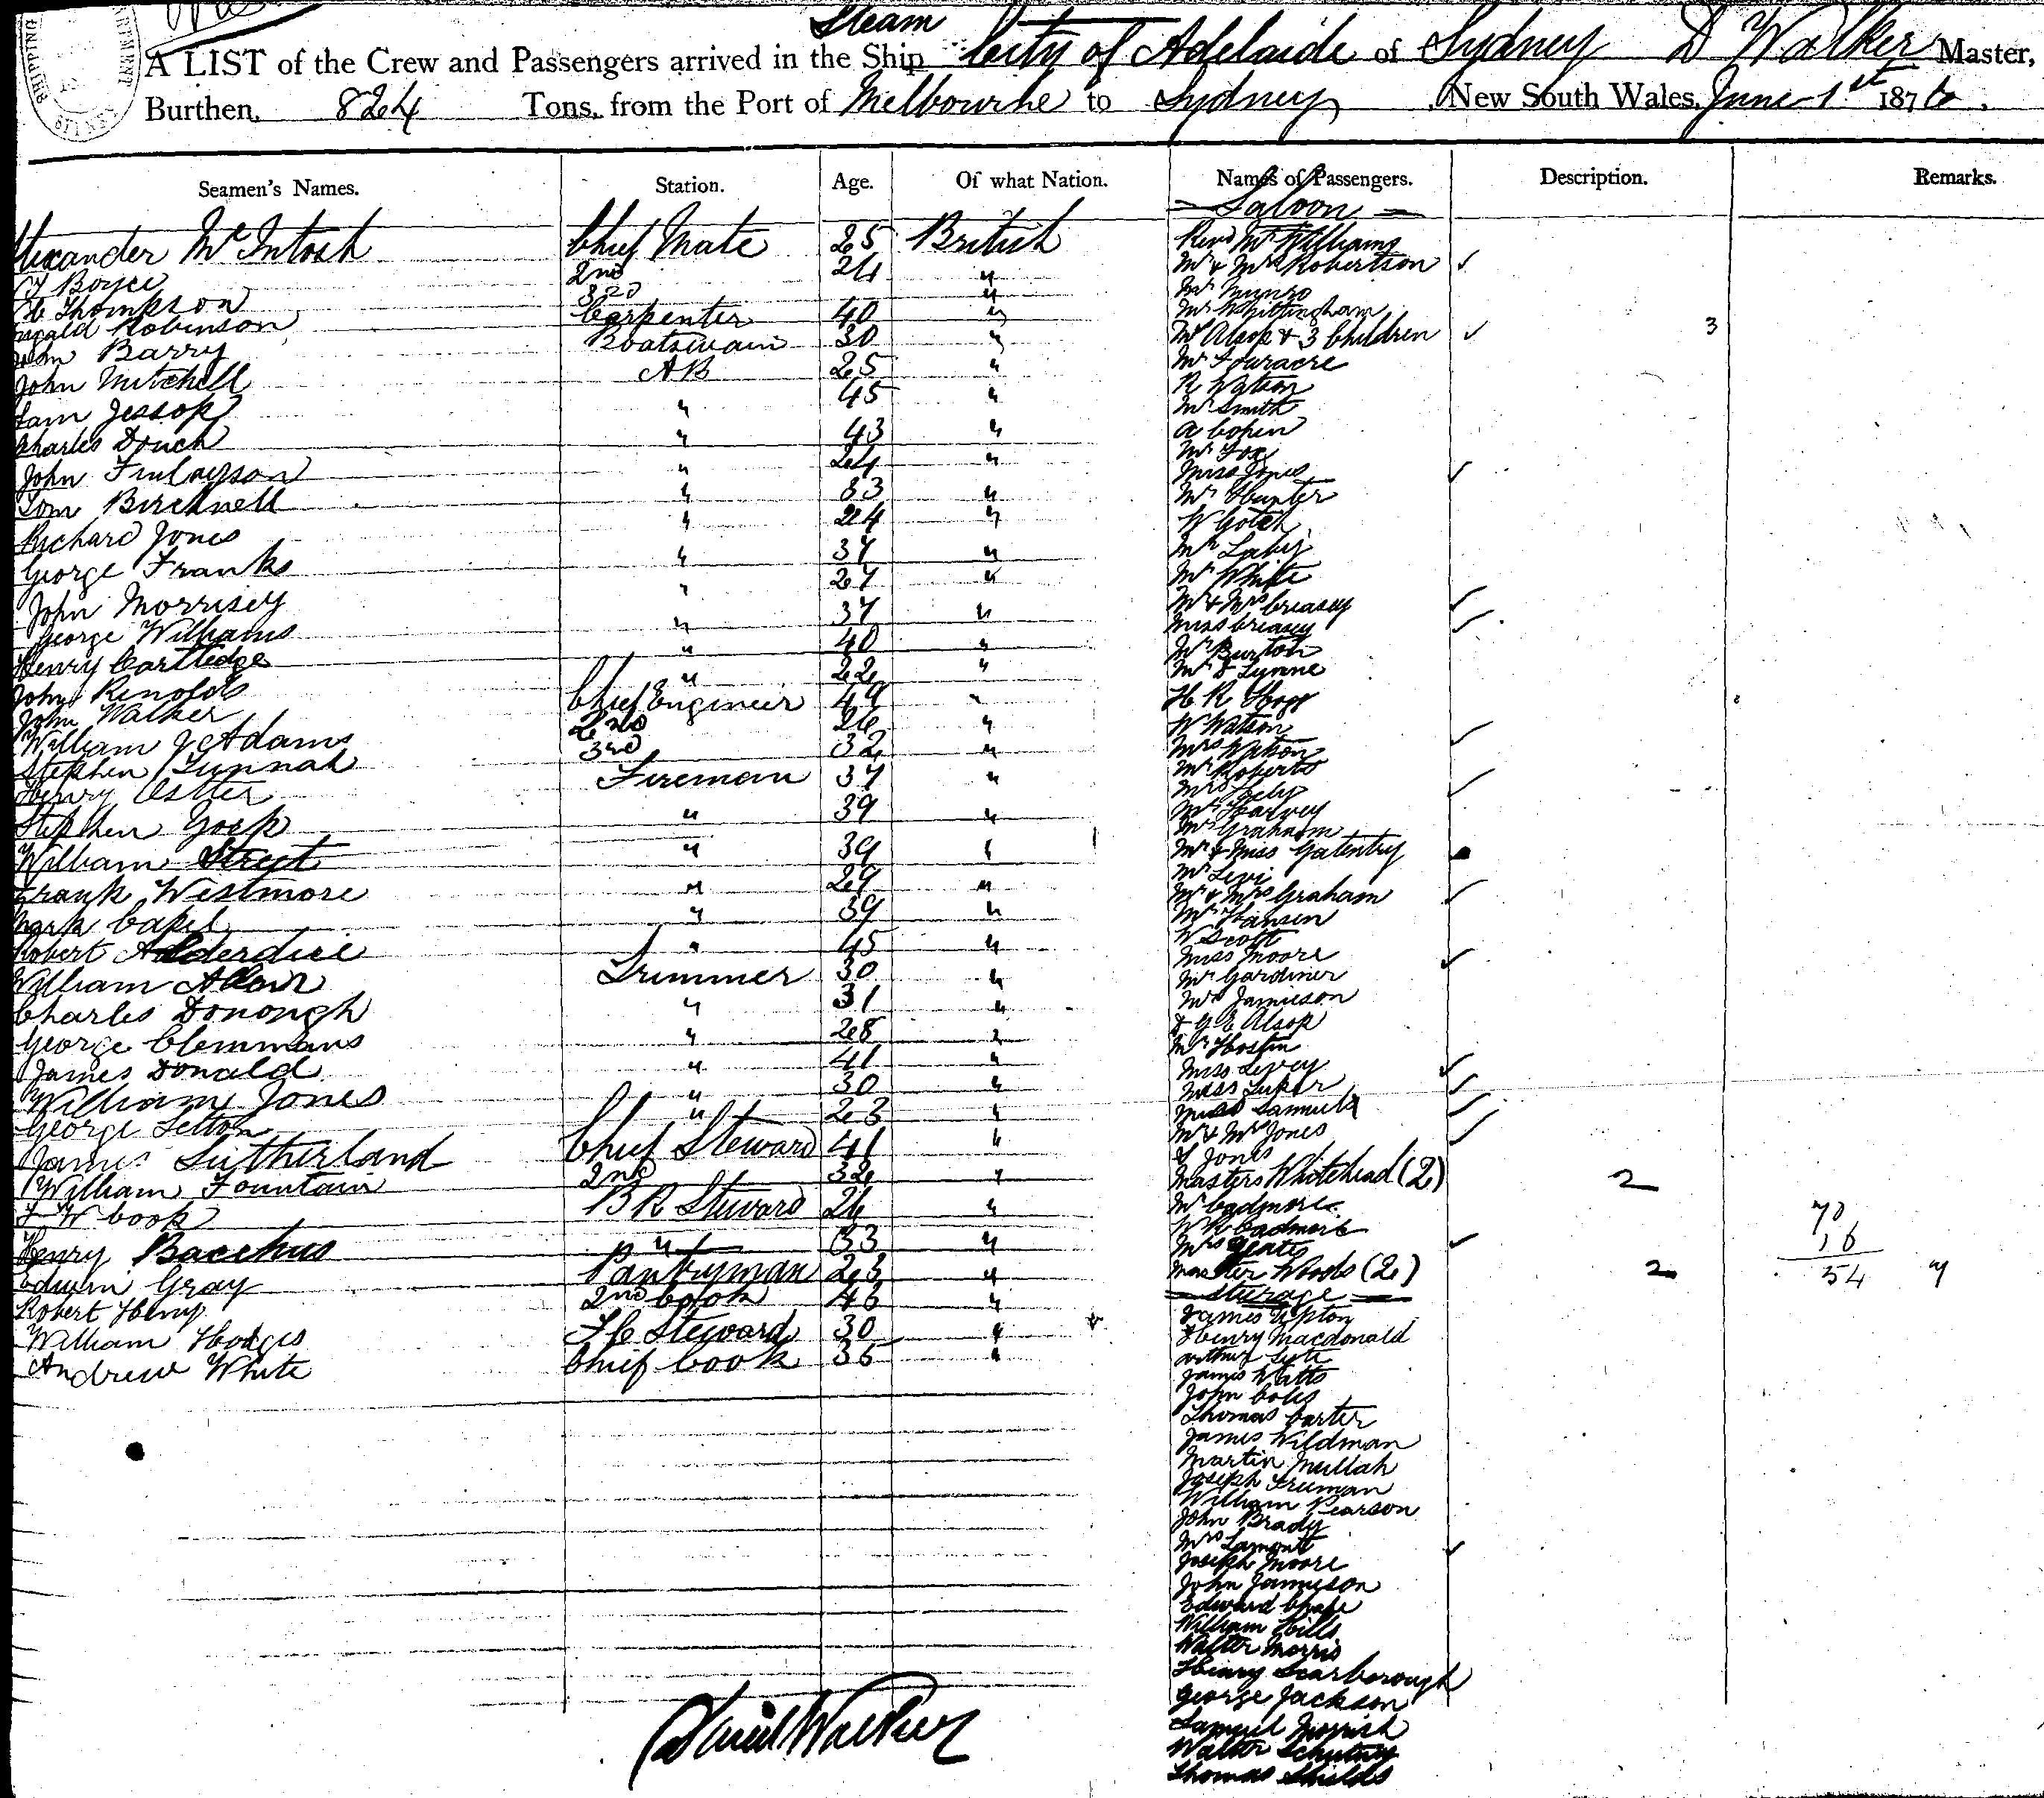 Steam
A LIST of the Crew and Passengers arrived in the Ship City of Adelaide of Sydney D Walker Master,
Burthen, 824 Tons, from the Port of Melbourne to Sydney, New South Wales, June 1st 1876.
Seamen's Names. Station. Age. Of what Nation. Names of Passengers. Description. Remarks.
Saloon
Alexander McIntosh Chief Mate 25 British
Boyce 2nd 24 "
Thompson 3rd "
Robinson Carpenter 40 "
John Barry Boatswain 30 "
John Mitchell AB 25 "
Sam Jessop " 45 "
Charles Douch " 43 "
John Finlayson " 24 "
Tom Bircknell " 33 "
Richard Jones " 24 "
George Franks " 37 "
John Morrisey " 27 "
George Williams " 37 "
Henry Cartledge " 40 "
John Renolds " 22 "
John Walker Chief Engineer 49 "
William J Adams 2nd 26 "
Stephen Tunnah 3rd 32 "
Henry Fireman 37 "
Stephen " 39 "
William Street " 39 "
Frank Westmore " 29 "
Mark Capel " 39 "
Robert Alderdice " 45 "
William Trimmer 30 "
Charles Donough " 31 "
George Clemmans " 28 "
James Donald " 41 "
William Jones " 30 "
George " 23 "
James Sutherland Chief Steward 41 "
William Fountain 2nd 32 "
F W Cook B R Steward 26 "
Henry Bacchus " 33 "
Edwin Gray Pantryman 23 "
Robert Henry 2nd Cook 46 "
William Hodges F C Steward 30 "
Andrew White Chief Cook 35 "
Revd Mr Williams
Mr & Mrs Robertson
Mr Munro
Mr Whittingham
Mr Alsop & 3 Children 3
Mr Fouracre
R Watson
Mr Smith
A Cohen
Mr Fox
Miss Jones
Mr Hunter
W Gotch
Mr
Mr White
Mr & Mrs Creasey
Miss Creasey
Mr Burton
Mr D Lynne
H R Hogg
W Watson
Mrs Watson
Mr Roberts
Mrs
Mr Harvey
Mr Graham
Mr & Miss Gatenby
Mr Levi
Mr & Mrs Graham
Mr Hansen
W Scott
Miss Moore
Mr Gardiner
Mr Jamieson
& G E Alsop
Mr
Miss Levey
Miss
Miss Samuels
Mr & Mrs Jones
Jones
Masters Whitehead (2) 2
Mr Cadmore
W R Cadmore
Mrs Yeates
Master Woods (2) 2
70
16
54
Steerage
James Upton
Henry Macdonald
Arthur
James Watts
John Coles
Thomas Carter
James Wildman
Martin Mullah
Joseph Freeman
William Pearson
John Brady
Mrs Lamont
Joseph Moore
John Jamieson
Edward
William Hills
Walter Morris
Henry Scarborough
George Jackson
Samuel Morrish
Walter
Thomas Shields
David Walker